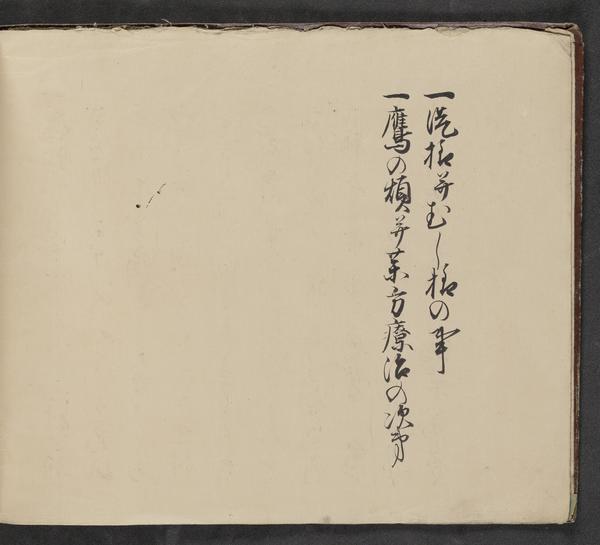 一様并むし様の事
一鷹の煩并薬方療治の次第